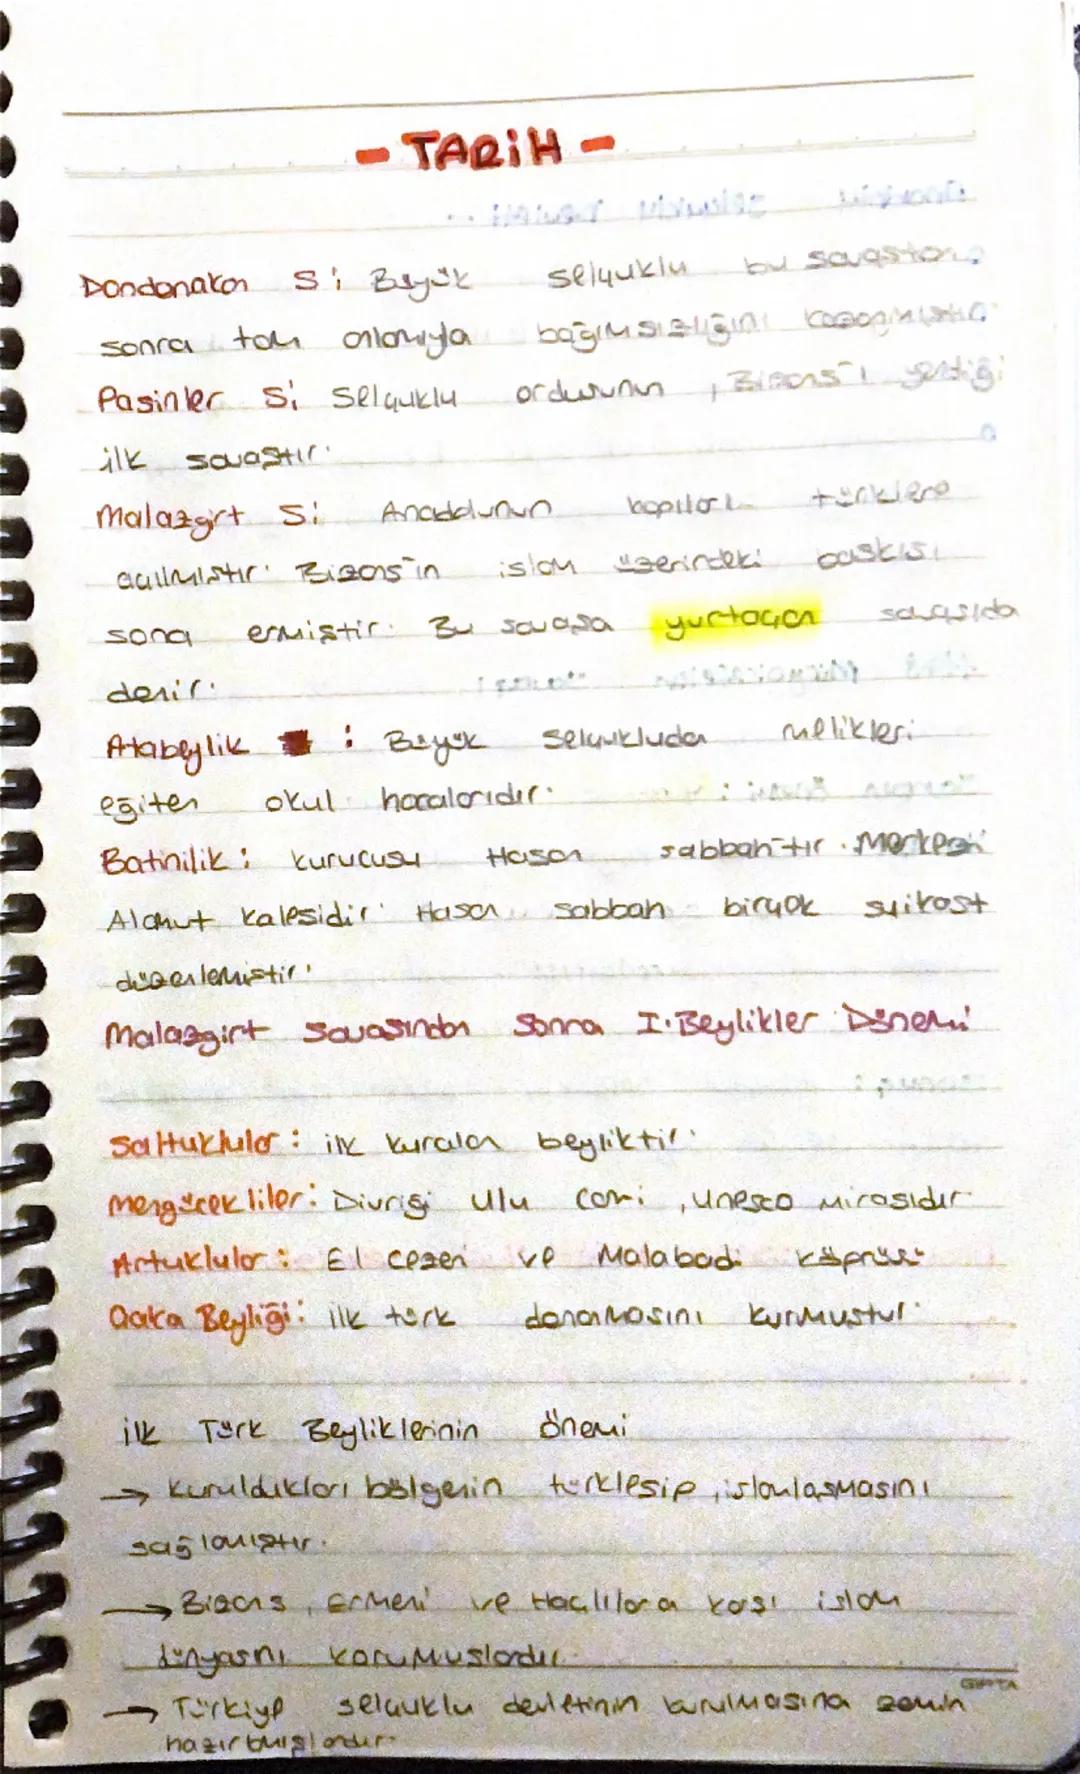 - TARİH -
Dandanakan S: Büyük selçuklu bu savaştan
sonra tam anlamıyla bağımsızlığını kazanmıştır.
Pasinler S: Selçuklu ordusunun, Bizans'ı yendiği
ilk savaştır.
Malazgirt S: Anadolunun kapıları türklere
açılmıştır. Bizans'ın islam üzerindeki baskısı
sona ermiştir. Bu savaşa yurtaçan savaşıda
denir.
Atabeylik : Büyük selçukluda melikleri
eğiten okul hocalarıdır.
Batinilik: kurucusu Hasan sabbah'tır. Merkezi
Alamut kalesidir. Hasan sabbah birçok suikast
düzenlemiştir.
Malazgirt Savaşından Sonra I. Beylikler Dönemi
Saltuklular: ilk kurulan beyliktir.
Mengücekliler: Divriği ulu cami, unesco mirasıdır.
Artuklular: El cezeri ve Malabadi köprüsü
Çaka Beyliği: ilk türk donanmasını kurmuştur.
ilk Türk Beyliklerinin önemi
→ kuruldukları bölgenin türkleşip, islamlaşmasını
sağlamıştır.
→ Bizans, ermeni ve Haçlılara karşı islam
dünyasını korumuşlardır.
→ Türkiye selçuklu devletinin kurulmasına zemin
hazırlamışlardır.